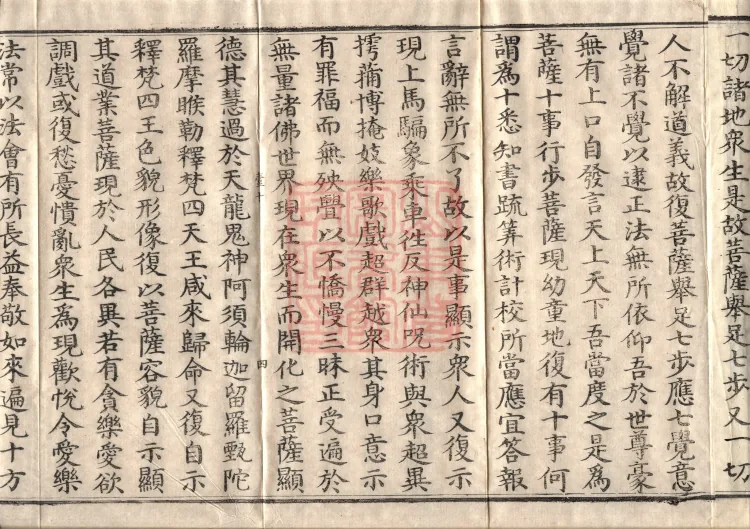 一切諸地衆生是故菩薩舉足七步又一切
人不解道義故復菩薩舉足七步應七覺意
覺諸不覺以逮正法無所依仰吾於世尊豪
無有上口自發言天上天下吾當度之是爲
菩薩十事行步菩薩現幼童地復有十事何
謂爲十悉知書䟽筭術計校所當應宜荅報
言辭無所不了故以是事顯示衆人又復示
現上馬騙象乘車徃反神仙呪術與衆超異
摴蒱博掩妓樂歌戲超群越衆其身口意示
有罪福而無殃舋以不憍慢三昧正受遍於
無量諸佛世界現在衆生而開化之菩薩顯
德其慧過於天龍鬼神阿須輪迦留羅甄陀
羅摩睺勒釋梵四天王咸來歸命又復自示
釋梵四王色貌形像復以菩薩容貌自示顯
其道業菩薩現於人民各異若有貪樂愛欲
調戲或復愁憂憒亂衆生為現歡悅令愛樂
法常以法會有所長益奉敬如來遍見十方
四